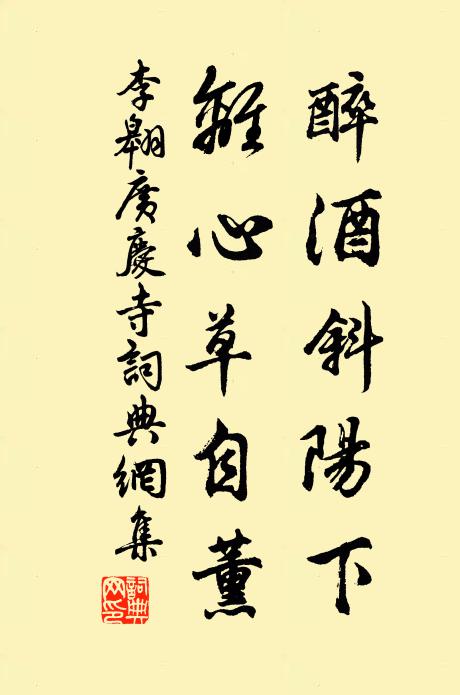 醉酒斜陽下
離心草自薰
李翱廣慶寺詞典網集
詞典網印